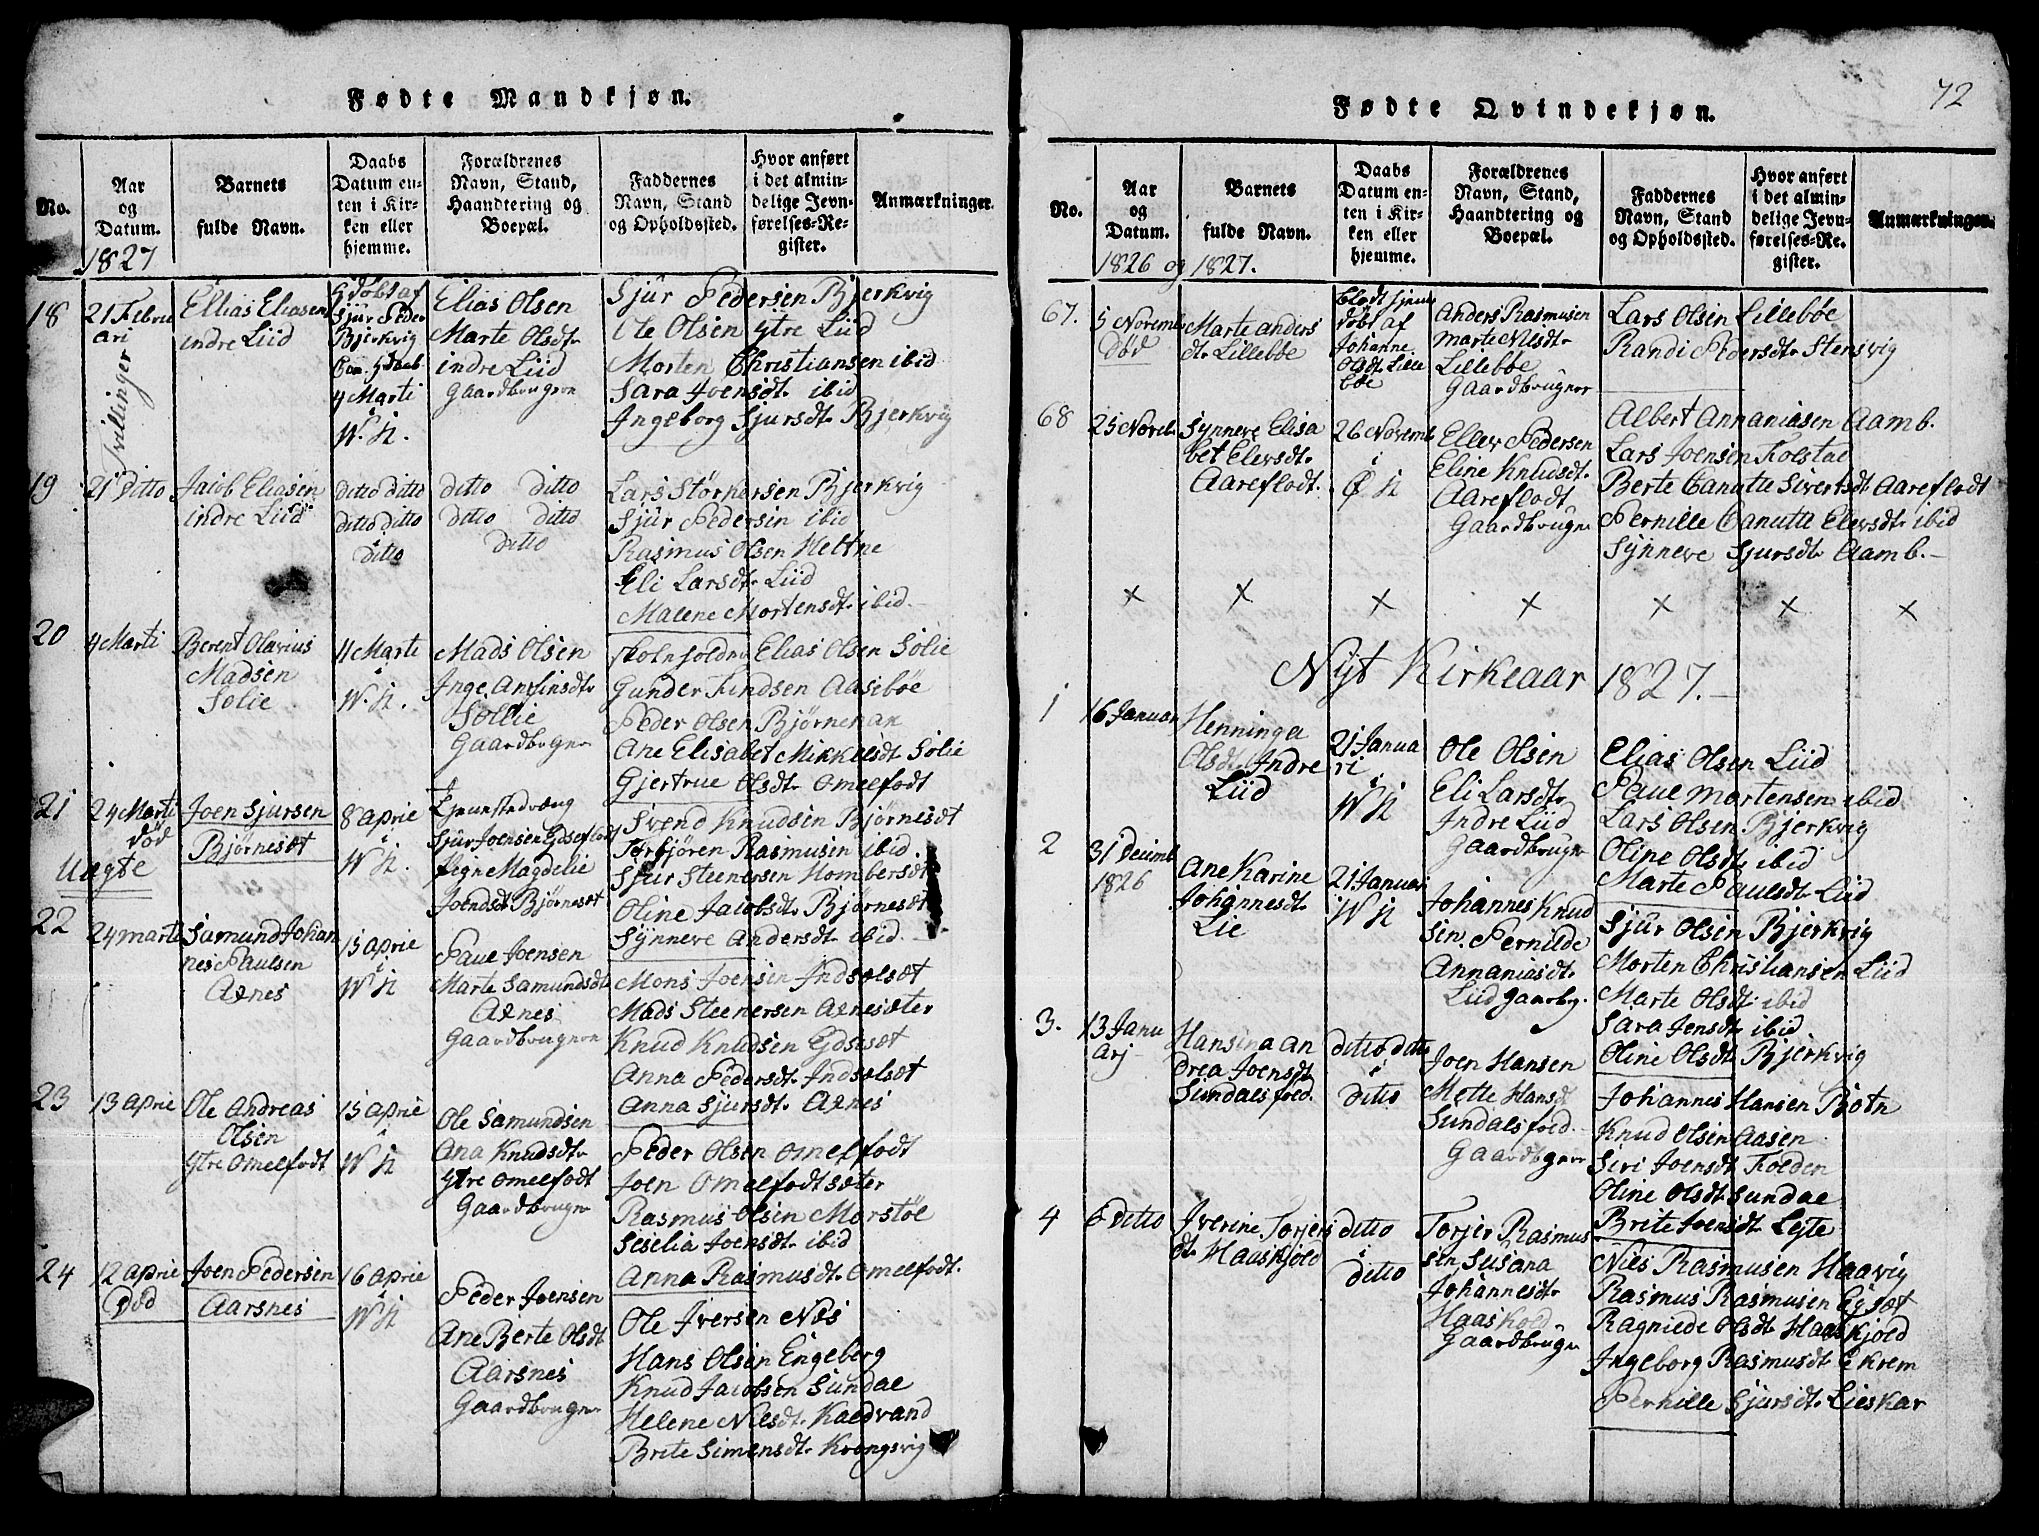 Fødte Mandkjøn.
No.
Aar og Datum.
Barnets fulde Navn.
Daabs Datum enten i Kirken eller hjemme.
Forældrenes Navn, Stand, Haandtering og Boepæl.
Faddernes Navn, Stand og Opholdssted.
Hvor anført i det almindelige Jevnførelses-Register.
Anmærkninger.
1827
18
21 Febru
ari
Tvillinger
Ellias Eliasen
indre Liid
Hjdøbt af
Sjur Peder
Bjerkvig
4 Marti
i
W. K.
Elias Olsen
Marte Olsdt.
indre Liid
Gaardbruger
Sjur Pedersen Bjerkvig
Ole Olsen ytre Liid
Morten Christiansen ibid
Sara Joensdt. ibid
Ingeborg Sjursdt. Bjerkvig
19
21 Ditto
Jacob Eliasen
indre Liid
ditto ditto
ditto ditto
ditto
ditto ditto
ditto ditto
ditto
Lars Størkersen Bjerkvig
Sjur Pedersen ibid
Rasmus Olsen Keltne
Eli Larsdt. Liid
Malene Mortensdt. ibid.
20
4 Marti
Berent Olavius
Madsen
Solie
11 Marte
i
W. K.
Mads Olsen
Inge Anfinsdt.
Sollie
Gaardbruger
Skoleholder Elias Olsen Solie
Gunder Findsen Aasebøe
Peder Olsen Bjørnenak
Ane Elisabet Mikkelsdt. Solie
Gjertrue Olsdt. Omelfodt
21
24 Marti
død
Uægte
Joen Sjursen
Bjørnesæt
8 Aprie
i
W K.
Sjur Joensen
Pigne Magdelie
Joensdt Bjørnesæt
Svend Knudsen Bjørnesæt
Torbjøren Rasmusen ibid.
Sjur Steenersen Hombersdt
Oline Jacobsdt. Bjørnesæt
Synneve Andersdt. ibid.
22
24 marti
Samund Johan
nes Paulsen
Aknes
15 Aprie
i
W K
Paue Joensen
Marte Samundsdt
Aknes
Gaardbruger
Mons Joensen Indselsæt
Mads Steenersen Aknesæter
Knud Knudsen Ejdesæt
Anna Pedersdt. Indselsæt
Anna Sjursdt. Aknes
23
13 Aprie
Ole Andreas
Olsen
ytre Omelfodt
15 Aprie
i
W K
Ole Samundsen
Ana Knudsdt.
ytre Omelfodt
Gaardbruger
Peder Olsen Omelfodt
Joen Omelfodtsæter
Rasmus Olsen Morstøl
Seselia Joensdt. ibid
Anna Rasmusdt. Omelfodt.
24
12 Aprie
Død
Joen Pedersen
Aarsnes
16 Aprie
i
W K
Peder Joensen
Ane Berte Olsdt
Aarsnes
Gaardbruger
Ole Iversen Næs
Hans Olsen Engeberg
Knud Jacobsen Sundae
Helene Nilsdt. Kaedvand
Brite Simensdt. Krongsvig
72
Fødte Qvindekjøn.
No.
Aar og Datum.
Barnets fulde Navn.
Daabs Datum enten i Kirken eller hjemme.
Forældrenes Navn, Stand, Haandtering og Boepæl.
Faddernes Navn, Stand og Opholdssted.
Hvor anført i det almindelige Jevnførelses-Re. gister.
Anmærkninger.
1826 og 1827.
67.
5 Novemb
død
Marte Anders
dt. Lillebøe
Blodt hjem
døbt af
Johanne
Olsdt. Lille
bøe
Anders Rasmusen
Marte Nilsdt.
Lillebøe
Gaardbruger
Lars Olsen Lillebøe
Randi Pedersdt. Stensvig
68
25 Noveb.
Synneve Elisa
bet Elevsdt.
Aareflodt.
26 Novemb
i
Ø K
Ellev Pedersen
Eline Knudsdt.
Aareflodt
Gaardbruger
Albert Annaniasen Aamb.
Lars Joensen Folstae
Berte Canutte Sivertsdt Aareflodt
Pernille Canutte Elevsdt. ibid
Synneve Sjursdt. Aamb.
x x x x x x x
Nyt Kirkeaar 1827.
1
16 Januar
Henninga
Olsdt. Indre
Liid
21 Janua
ri
i
W K
Ole Olsen
Eli Larsdt.
Indre Liid
Gaardbruger
Elias Olsen Liid
Paue Mortensen ibid
Lars Olsen Bjerkvig
Oline Olsdt. ibid
Marte Paulsdt. Liid
2
31 Decimb
1826
Ane Karine
Johannesdt.
Lie
21 Januari
i
W K
Johannes Knud
sen. Pernilde
Annaniasdt.
Liid gaardbg.
Sjur Olsen Bjerkvig
Morten Christiansen Liid
Marte Olsdt. ibid
Sara Jensdt. ibid.
Oline Olsdt. Bjerkvig
3.
13 Janu
arj
Hansina An
drea Joensdt
Sundalsfoed.
ditto ditto
i
ditto
Joen Hansen
Mette Hansdt
Sundalsfoed.
Gaardbger
Johannes Hansen Botn
Knud Olsen Aasen
Siri Joensdt. Foeden
Oline Olsdt. Sundae
Brite Joensdt. Lejte
4
6 Ditto
Iverine Torjers
dt. Haaskjold
ditto
i
ditto
Torjer Rasmus
sen Susana
Johannesdt.
Haaskold
Gaardbruger
Nils Rasmusen Haavig
Rasmus Rasmusen Egsæt
Ragniede Olsdt. Haaskjold
Ingeborg Rasmusdt. Ekrem
Pernille Sjursdt. Lieskar